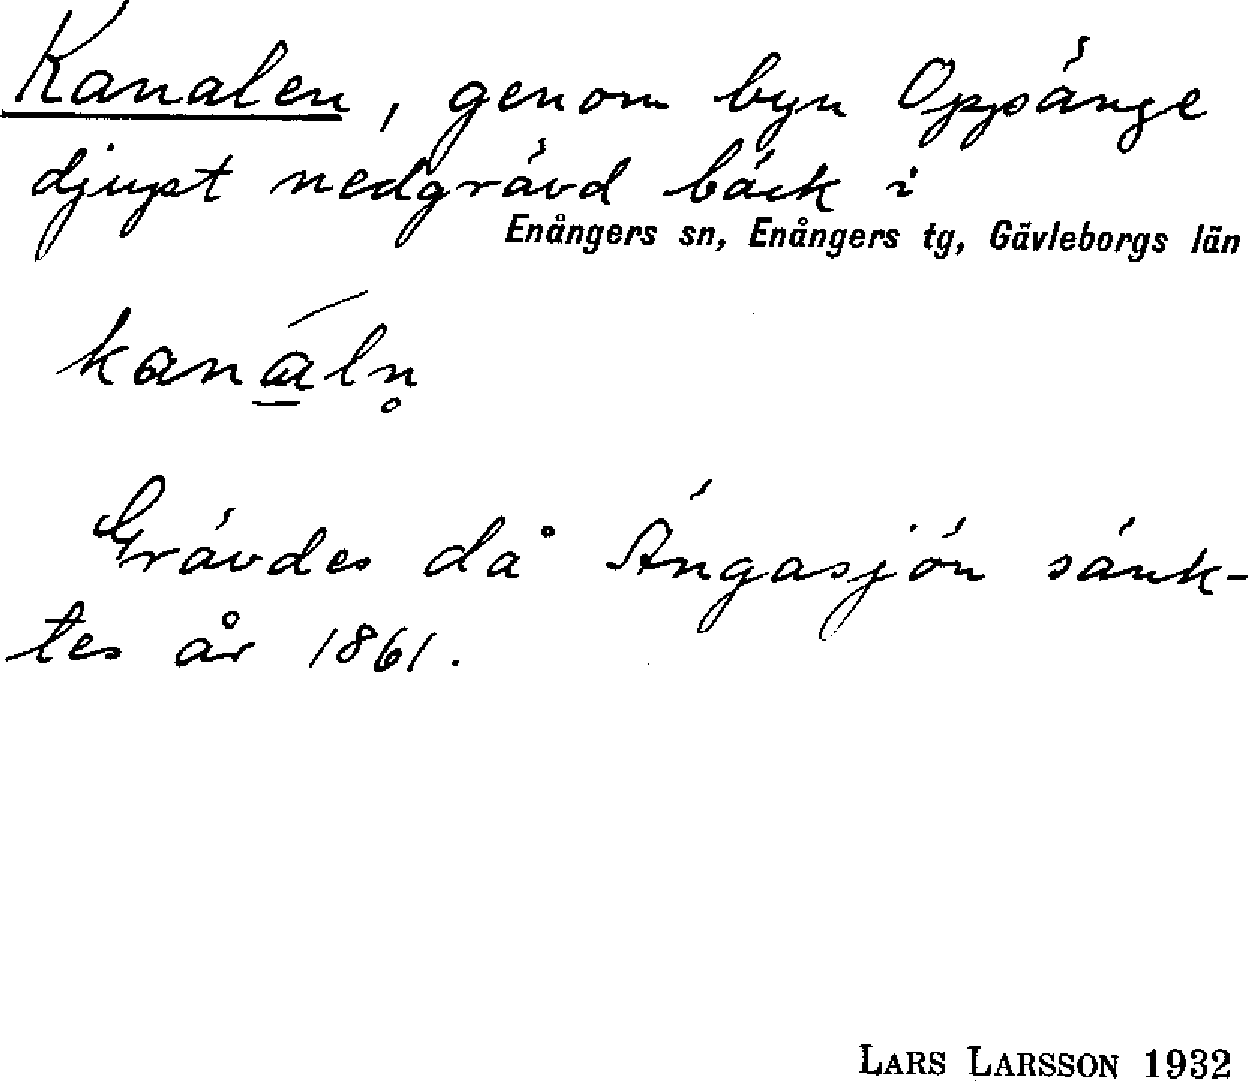 Kanalen, genom byn Oppänge
djupt nedgrävd bäck i
Enångers sn, Enångers tg, Gävleborgs län
kanáln̥
Grävdes då Ängasjön sänk-
tes år 1861.
LARS LARSSON 1932